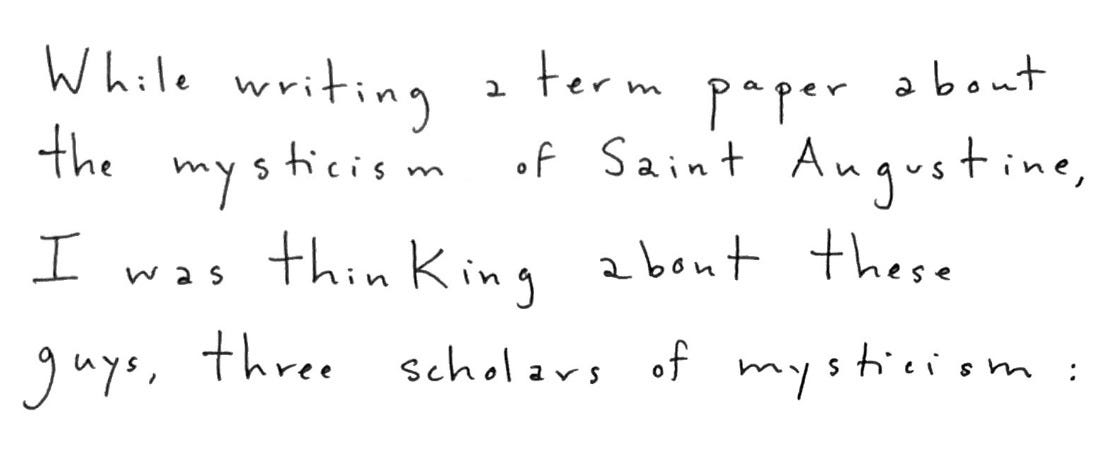 While writing a term paper about
the mysticism of Saint Augustine,
I was thinking about these
guys, three scholars of mysticism: